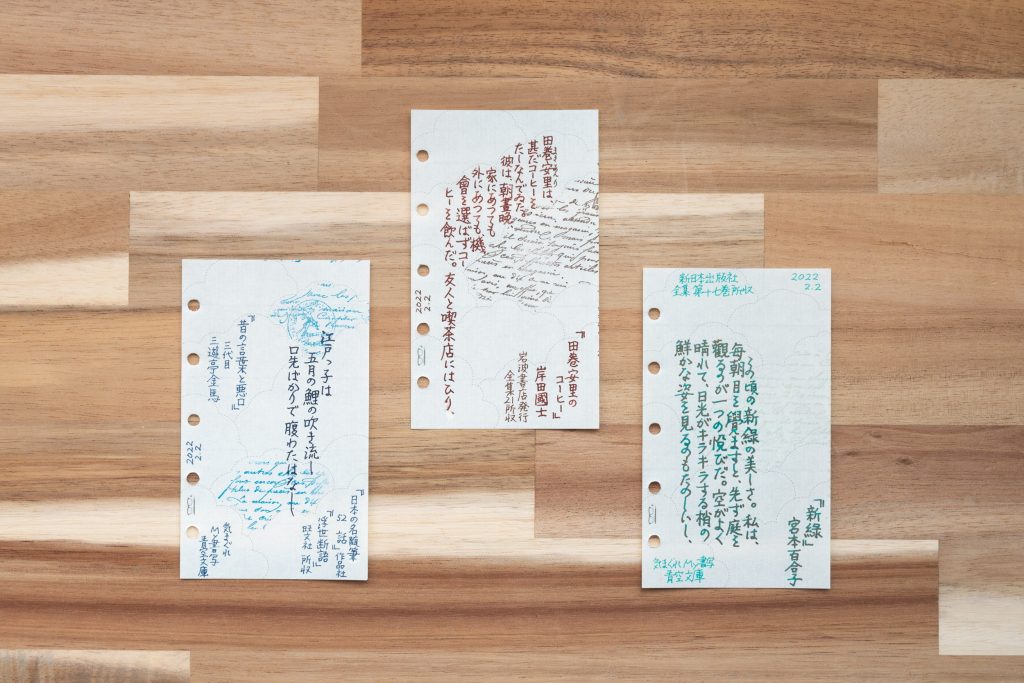 江戸っ子は
五月の鯉の吹き流し
口先ばかりで腹わたはなし
『昔の言葉と悪口』
三代目
三遊亭金馬
2022
2.2
『日本の名随筆
52 話』作品社
『浮世断語』
旺文社 所収
気まぐれ
My書写
青空文庫
田巻安里は、
甚だコーヒーを
たしなんでゐた。
彼は、朝晝晩、
家にあつても
外にあつても、機
會を選ばずコー
ヒーを飲んだ。友人と喫茶店にはひり、
『田巻安里の
コーヒー』
岸田國士
岩波書店発行
全集21所収
2022
2.2
新日本出版社
全集 第十七巻所収
2022
2.2
この頃の新綠の美しさ。私は、
毎朝目を覺ますと、先ず庭を
觀るのが一つの悦びだ。空がよく
晴れて、日光がキラキラする梢の
鮮かな姿を見るのもたのしいし、
『新綠』
宮本百合子
気まぐれMy書写
青空文庫